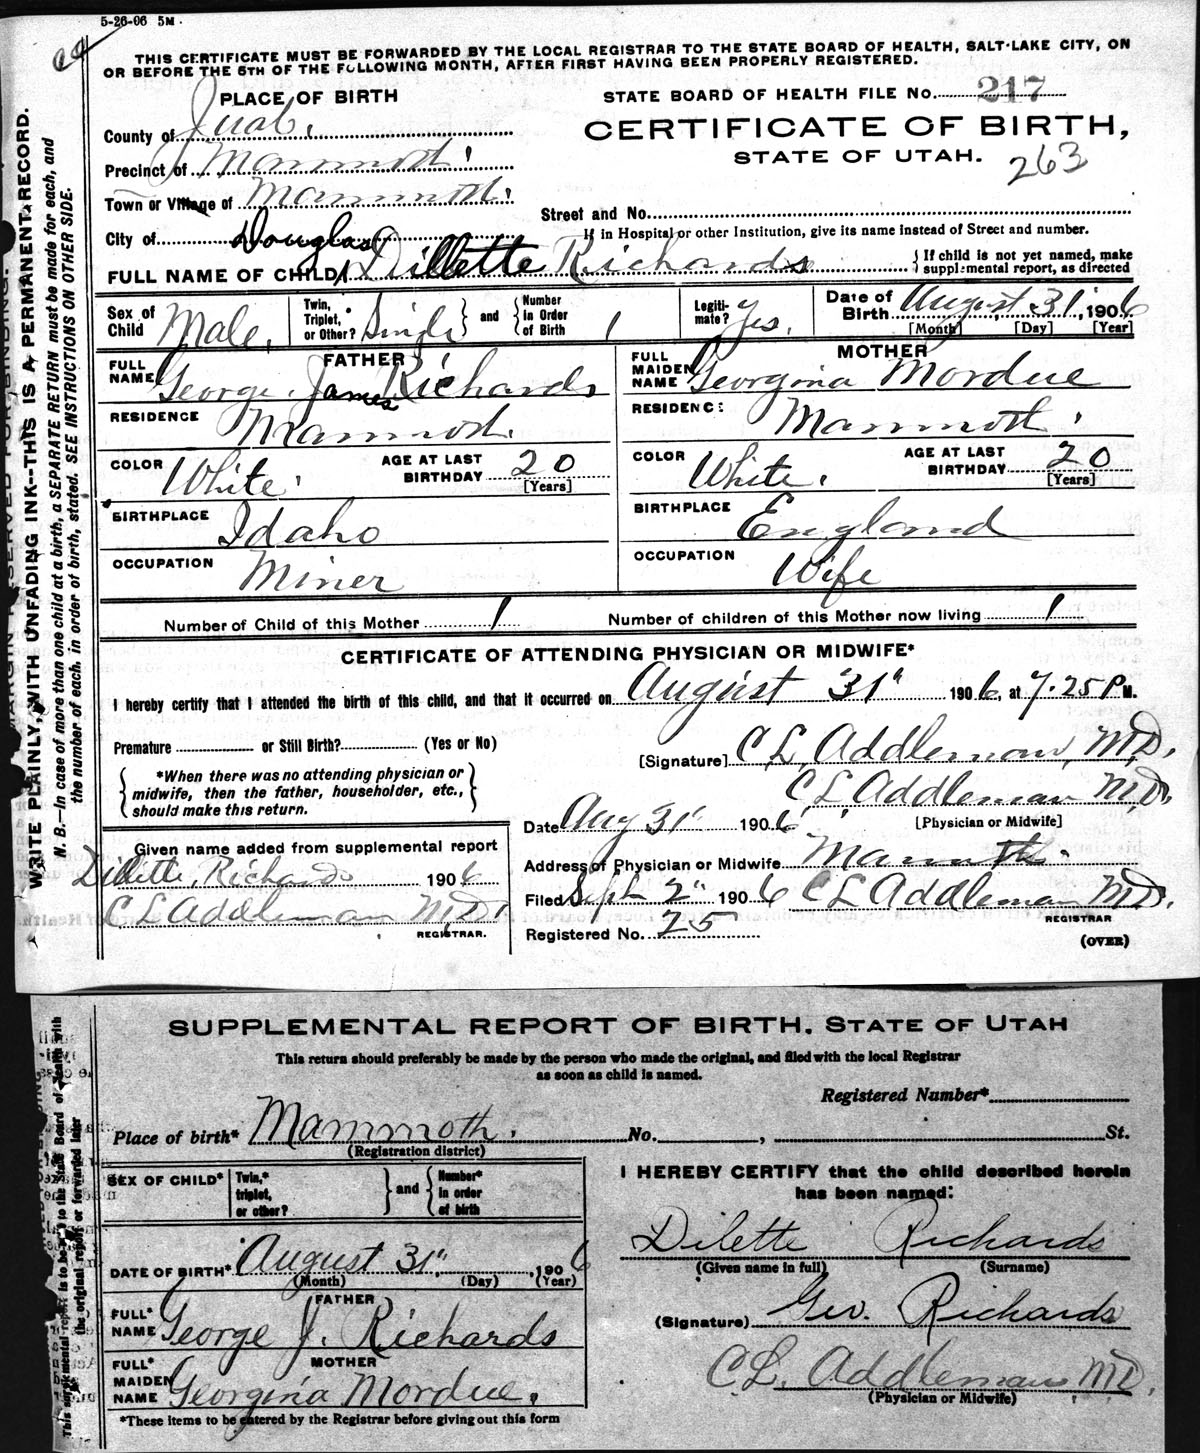 5-26-06 5M.
THIS CERTIFICATE MUST BE FORWARDED BY THE LOCAL REGISTRAR TO THE STATE BOARD OF HEALTH, SALT LAKE CITY, ON
OR BEFORE THE 5TH OF THE FOLLOWING MONTH, AFTER FIRST HAVING BEEN PROPERLY REGISTERED.
PLACE OF BIRTH
STATE BOARD OF HEALTH FILE No. 217
County of Juab.
CERTIFICATE OF BIRTH,
STATE OF UTAH. 263
Precinct of Mammoth.
Town or Village of Mammoth.
Street and No.
City of
If in Hospital or other Institution, give its name instead of Street and number.
Douglas
FULL NAME OF CHILD Dillette Richards { If child is not yet named, make supplemental report, as directed
Sex of Child Male. Twin, Triplet, or Other? Single } and { Number in Order of Birth 1 Legiti-mate? yes. Date of Birth August 31, 1906
[Month] [Day] [Year]
FATHER
FULL NAME George James Richards
RESIDENCE Mammoth.
COLOR White. AGE AT LAST BIRTHDAY 20 [Years]
BIRTHPLACE Idaho
OCCUPATION Miner
MOTHER
FULL MAIDEN NAME Georgina Mordue
RESIDENCE Mammoth.
COLOR White. AGE AT LAST BIRTHDAY 20 [Years]
BIRTHPLACE England
OCCUPATION Wife
Number of Child of this Mother 1 Number of children of this Mother now living 1
CERTIFICATE OF ATTENDING PHYSICIAN OR MIDWIFE*
I hereby certify that I attended the birth of this child, and that it occurred on August 31" 1906, at 7.25 P. M.
Premature or Still Birth? (Yes or No)
[Signature] C. L. Addleman, M.D.
{ *When there was no attending physician or
midwife, then the father, householder, etc.,
should make this return. }
C. L. Addleman M.D.
[Physician or Midwife]
Date Aug 31" 1906
Given name added from supplemental report
Dillette Richards 1906
C L Addleman M.D.
REGISTRAR.
Address of Physician or Midwife Mammoth.
Filed Sept 2" 1906 C L Addleman M.D.
REGISTRAR
Registered No. 25
(OVER)
WRITE PLAINLY, WITH UNFADING INK--THIS IS A PERMANENT RECORD.
N. B.—In case of more than one child at a birth, a SEPARATE RETURN must be made for each, and
the number of each, in order of birth, stated. SEE INSTRUCTIONS ON OTHER SIDE.
SUPPLEMENTAL REPORT OF BIRTH, STATE OF UTAH
This return should preferably be made by the person who made the original, and filed with the local Registrar
as soon as child is named.
Registered Number*
Place of birth* Mammoth. No. , St.
(Registration district)
SEX OF CHILD* Twin,* triplet, or other? } and { Number* in order of birth
I HEREBY CERTIFY that the child described herein
has been named:
Dilette Richards
(Given name in full) (Surname)
DATE OF BIRTH* August 31", 1906
(Month) (Day) (Year)
FATHER
FULL* NAME George J. Richards
(Signature) Geo. Richards
MOTHER
FULL* MAIDEN NAME Georgina Mordue.
C. L. Addleman, M.D.
(Physician or Midwife)
*These items to be entered by the Registrar before giving out this form